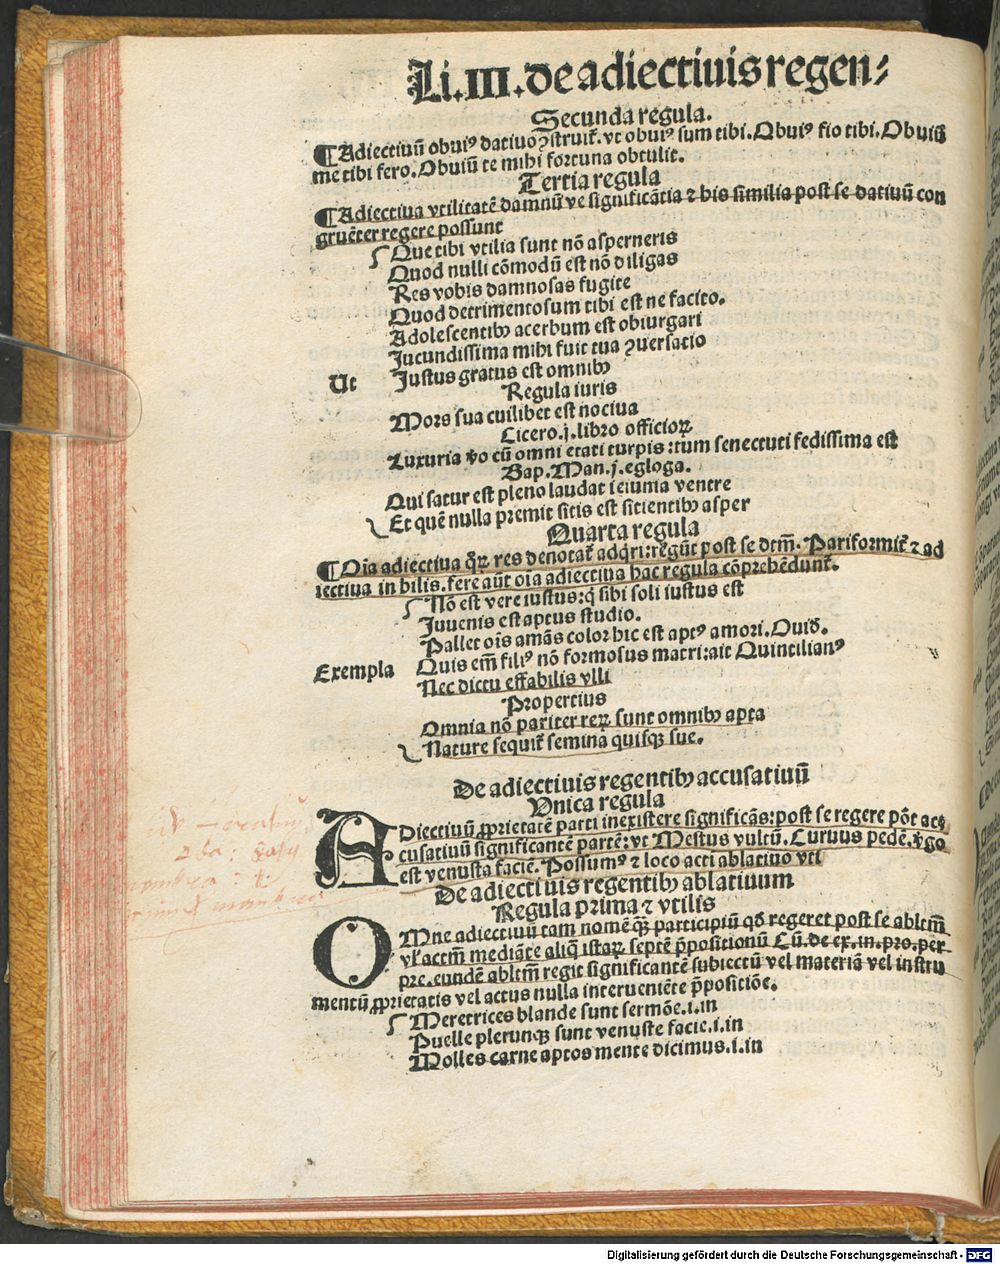 Li.III.de adiectiuis regen⸗
Secunda regula.
¶Adiectiuū obuiꝰ datiuo ↄstruit̄. vt obuiꝰ sum tibi. Obuiꝰ fio tibi. Obuiū
me tibi fero. Obuiū te mihi fortuna obtulit.
Tertia regula
¶Adiectiua vtilitatē damnū ve significātia ⁊ his similia post se datiuū con
gruēter regere possunt
Que tibi vtilia sunt nō asperneris
Quod nulli cōmodū est nō diligas
Res vobis damnosas fugite
Quod detrimentosum tibi est ne facito.
Adolescentibꝰ acerbum est obiurgari
Jucundissima mihi fuit tua ↄuersatio
Ut Justus gratus est omnibꝰ
Regula iuris
Mors sua cuilibet est nociua
Cicero.j.libro officioꝝ
Luxuria ꝟo cū omni etati turpis: tum senectuti fedissima est
Bap.Man.j.egloga.
Qui satur est pleno laudat ieiunia ventre
Et quē nulla premit sitis est sitientibꝰ asper
Quarta regula
¶Oīa adiectiua q̄bꝫ res denotat̄ adqri: regūt post se dtm̄. Pariformit̄ ⁊ ad
iectiua in bilis. fere aūt oīa adiectiua hac regula cōprehēdunt̄.
Nō est vere iustus: q̇ sibi soli iustus est
Juuenis est aptus studio.
Pallet oīs amās color hic est aptꝰ amori. Ouid̄.
Exempla Quis em̄ filiꝰ nō formosus matri: ait Quintilianꝰ
Nec dictu effabilis vlli
Propertius
Omnia nō pariter reꝝ sunt omnibꝰ apta
Nature sequit̄ semina quisqꝫ sue.
De adiectiuis regentibꝰ accusatiuū
Vnica regula
ADiectiuū ꝓprietatē parti inexistere significās: post se regere pōt ac⸗
cusatiuū significantē partē: vt Mestus vultū. Curuus pedē. ꝟgo
est venusta faciē. Possumꝰ ⁊ loco acti ablatiuo vti
De adiectiuis regentibꝰ ablatiuum
Regula prima ⁊ vtilis
OMne adiectiuū tam nomē qꝫ participiū qd̄ regeret post se abltm̄
vl̓ actm̄ mediāte aliq̄ istaꝝ septē p̄positionū Cū. de ex. in. pro. per
pre. eundē abltm̄ regit significantē subiectū vel materiā vel instru
mentū ꝓprietatis vel actus nulla interueniēte p̄positiōe.
Meretrices blande sunt sermōe.i.in
Puelle plerunqꝫ sunt venuste facie.i.in
Molles carne aptos mente dicimus.i.in
Digitalisierung gefördert durch die Deutsche Forschungsgemeinschaft - DFG